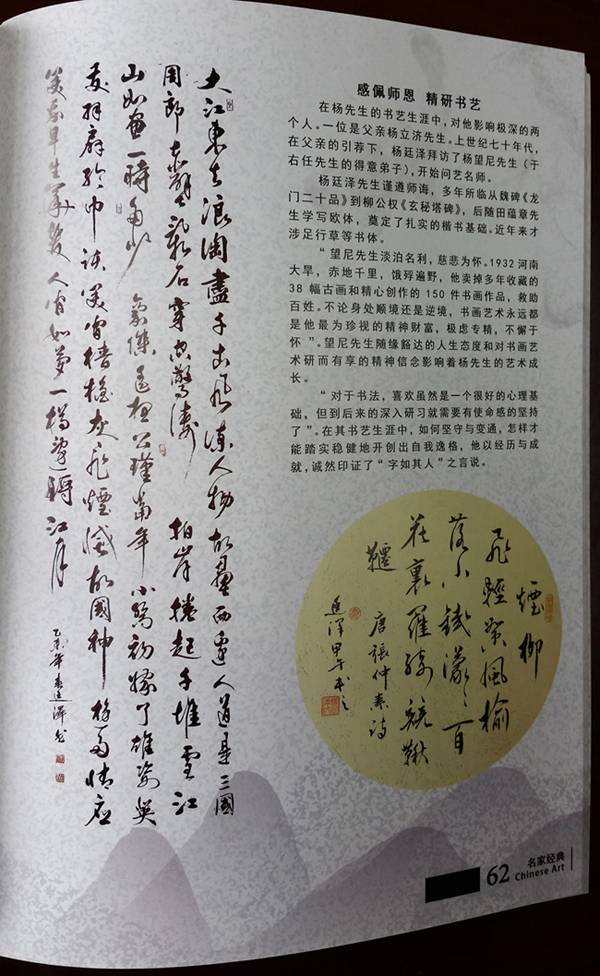 感佩师恩 精研书艺
在杨先生的书艺生涯中，对他影响极深的两
个人。一位是父亲杨立济先生。上世纪七十年代，
在父亲的引荐下，杨廷泽拜访了杨望尼先生（于
右任先生的得意弟子），开始问艺名师。
杨廷泽先生谨遵师诲，多年所临从魏碑《龙
门二十品》到柳公权《玄秘塔碑》，后随田蕴章先
生学写欧体，奠定了扎实的楷书基础。近年来才
涉足行草等书体。
“望尼先生淡泊名利，慈悲为怀。1932 河南
大旱，赤地千里，饿殍遍野，他卖掉多年收藏的
38 幅古画和精心创作的 150 件书画作品，救助
百姓。不论身处顺境还是逆境，书画艺术永远都
是他最为珍视的精神财富，极虑专精，不懈于
怀”。望尼先生随缘豁达的人生态度和对书画艺
术研而有享的精神信念影响着杨先生的艺术成
长。
“对于书法，喜欢虽然是一个很好的心理基
础，但到后来的深入研习就需要有使命感的坚持
了”。在其书艺生涯中，如何坚守与变通，怎样才
能踏实稳健地开创出自我逸格，他以经历与成
就，诚然印证了“字如其人”之言说。
大江東去浪淘盡千古風流人物故壘西邊人道是三國
周郎赤壁亂石穿空驚濤拍岸捲起千堆雪江
山如畫一時多少豪傑遙想公瑾當年小喬初嫁了雄姿英
發羽扇綸巾談笑間檣櫓灰飛煙滅故國神遊多情應
笑我早生華髮人間如夢一樽還酹江月
乙未年春廷澤書
煙柳
飛輕絮風榆
落小錢濛〻百
花裏羅綺競鞦
韆
唐張仲素詩
廷澤甲午書之
62
名家经典
Chinese Art